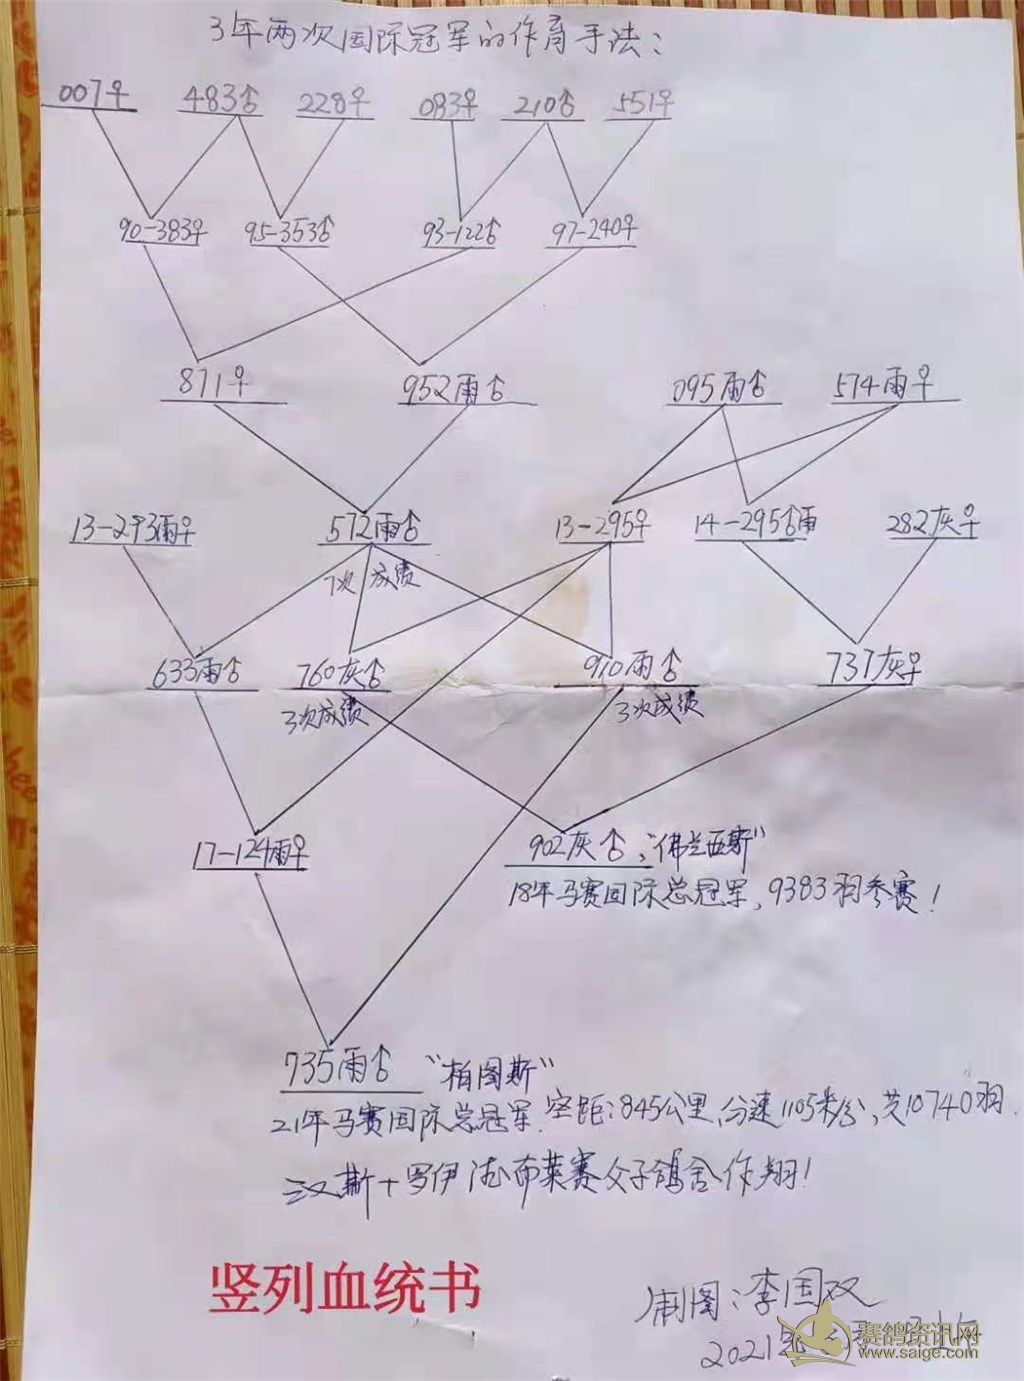 3年两次国际冠军的作育手法：
007♀ 483♂ 228♀ 083♀ 210♂ 551♀
90-383♀ 95-353♂ 93-122♂ 97-240♀
871♀ 952雨♂ 095雨♂ 574雨♀
13-293雨♀ 572雨♂ 13-295♀ 14-295♂雨 282灰♀
7次成绩
633雨♂ 760灰♂ 910雨♂ 737灰♀
3次成绩 3次成绩
17-124雨♀ 902灰♂，“佛兰西斯”
18年马赛国际总冠军，9383羽参赛！
735雨♂ “柏图斯”
21年马赛国际总冠军.空距：845公里，分速1105米/分，共10740羽.
汉斯+罗伊德布莱赛父子鸽舍作翔！
竖列血统书
制图：李国双
2021年
赛鸽资讯网
www.saige.com